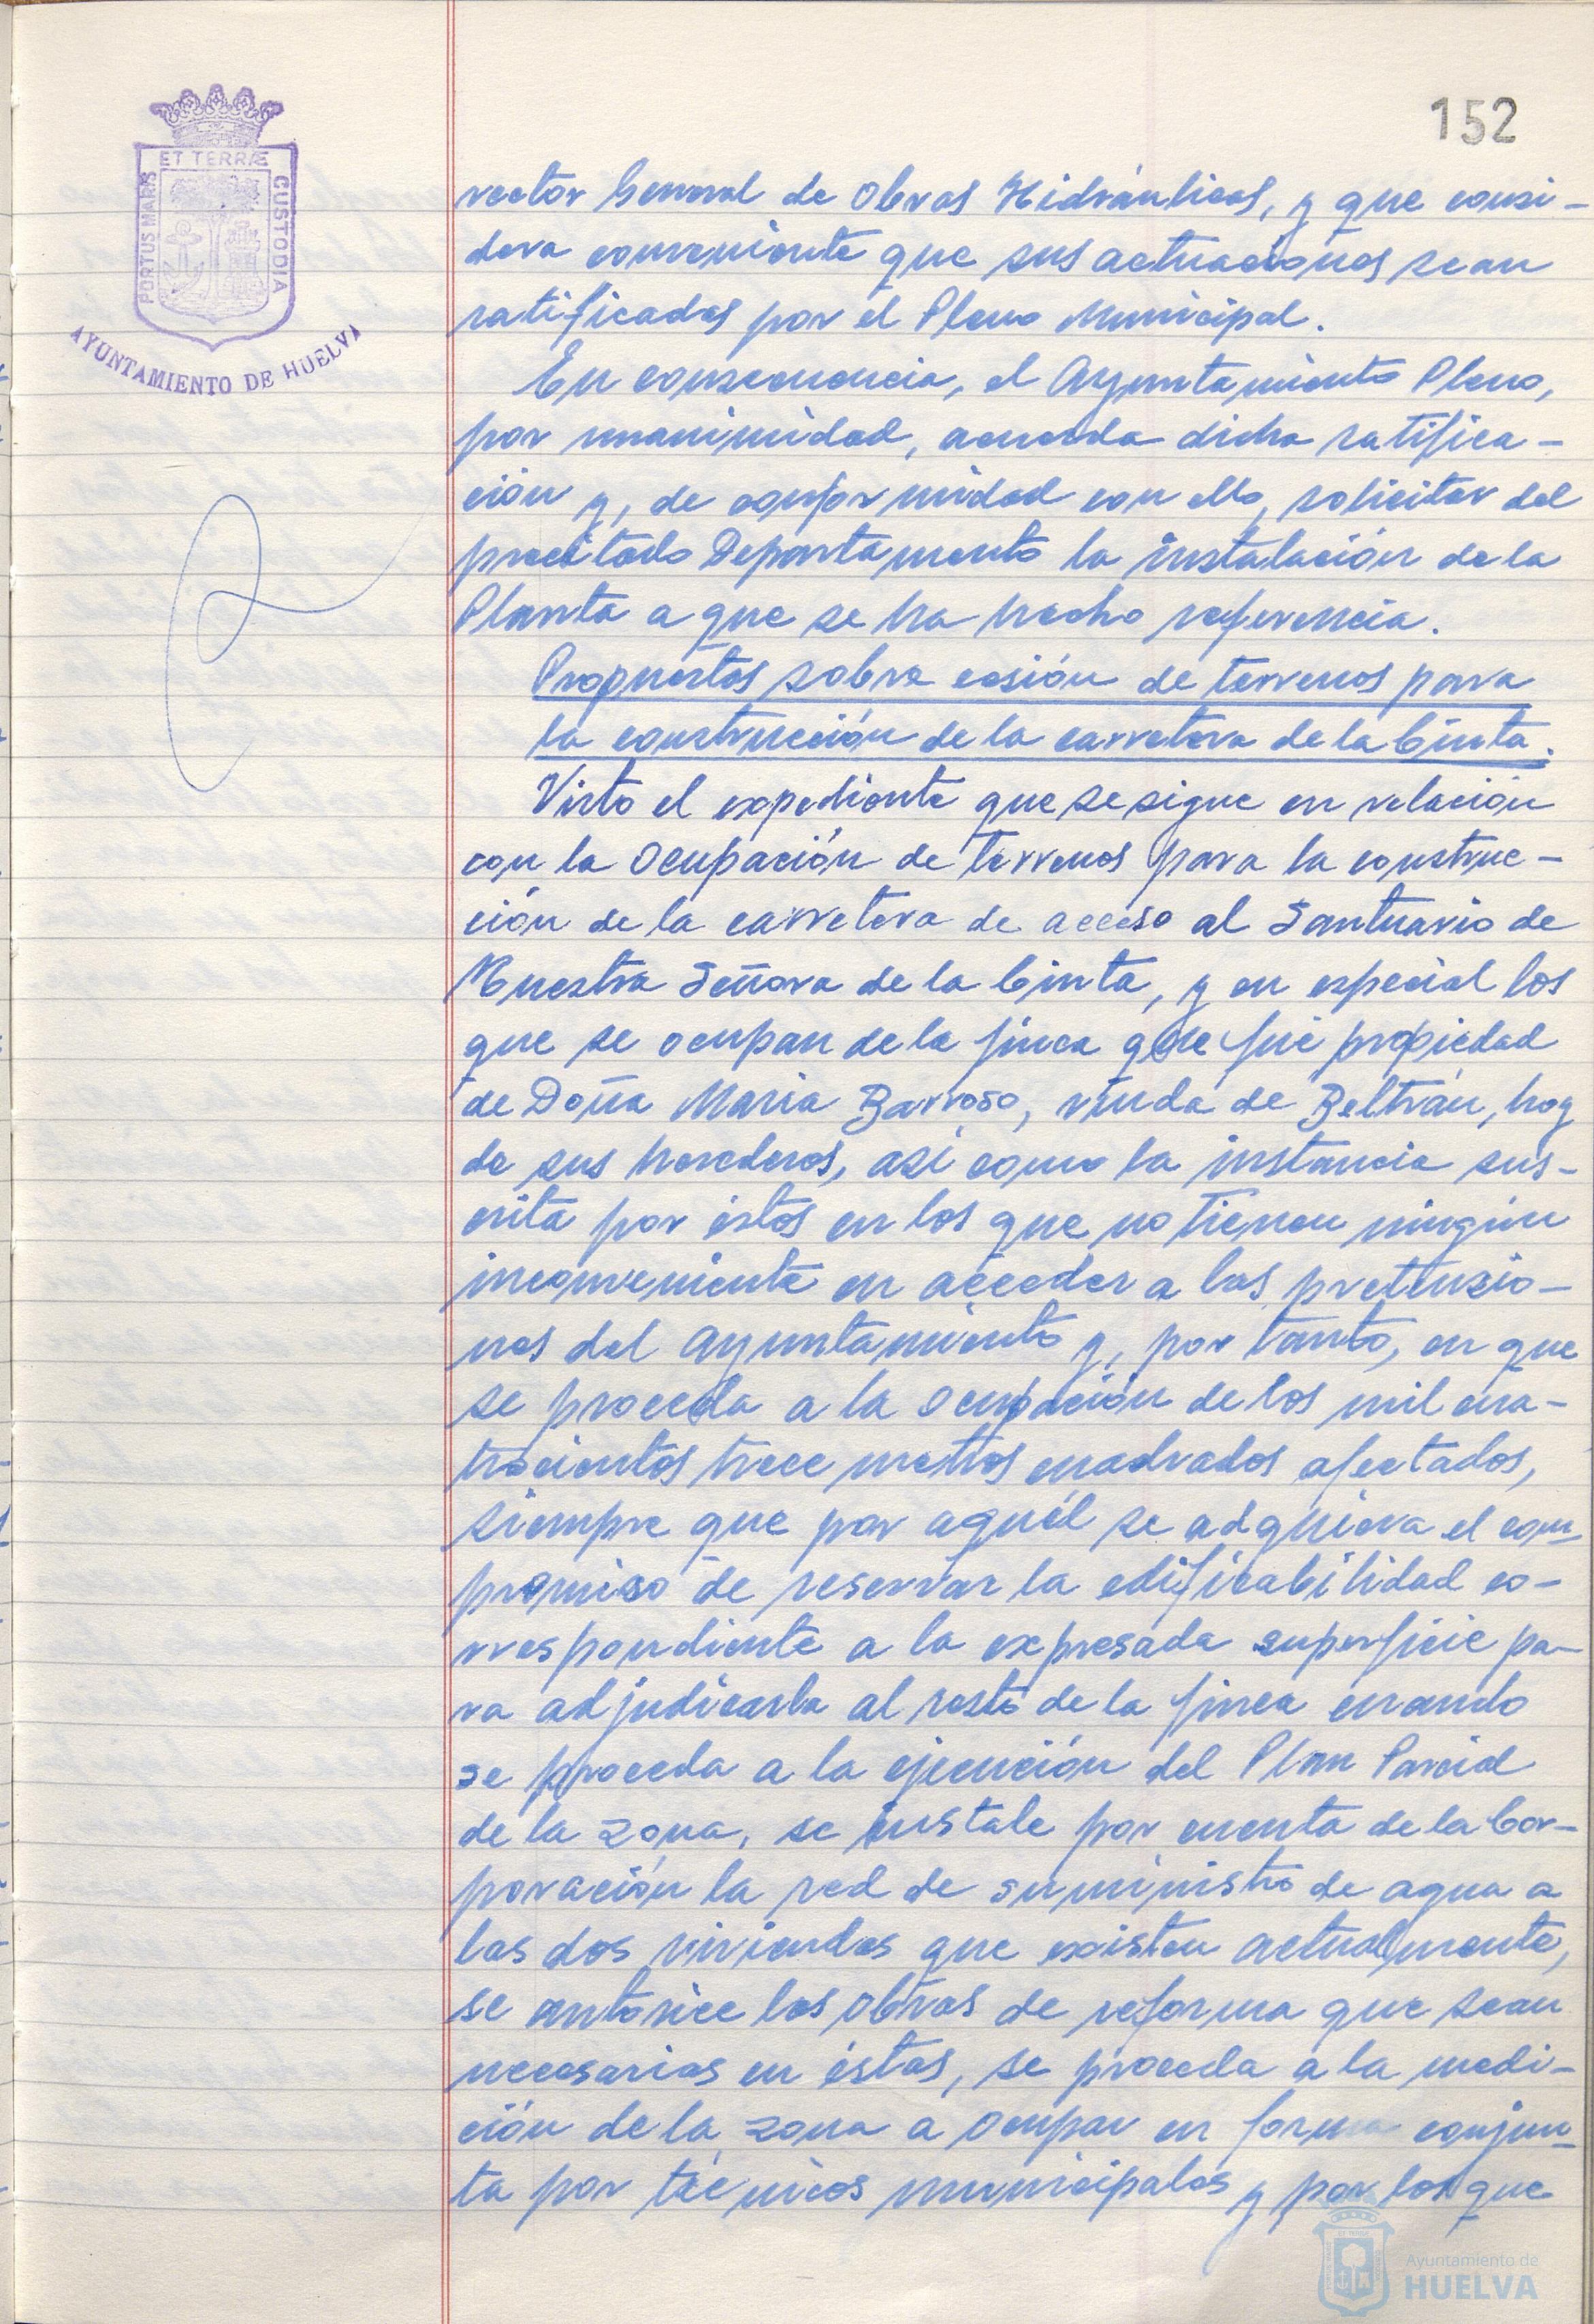 152
ET TERRÆ
PORTUS MARIS
CUSTODIA
AYUNTAMIENTO DE HUELVA
rector General de Obras Hidráulicas, y que consi-
dera conveniente que sus actuaciones sean
ratificadas por el Pleno Municipal.
En consecuencia, el Ayuntamiento Pleno,
por unanimidad, acuerda dicha ratifica-
ción y, de conformidad con ello, solicitar del
precitado Departamento la instalación de la
Planta a que se ha hecho referencia.
Propuestas sobre cesión de terrenos para
la construcción de la carretera de la Cinta.
Visto el expediente que se sigue en relación
con la ocupación de terrenos para la construc-
ción de la carretera de acceso al Santuario de
Nuestra Señora de la Cinta, y en especial los
que se ocupan de la finca que fué propiedad
de Doña Maria Barroso, viuda de Beltrán, hoy
de sus herederos, asi como la instancia sus-
crita por éstos en los que no tienen ningún
inconveniente en acceder a las prettensio-
nes del Ayuntamiento y, por tanto, en que
se proceda a la ocupación de los mil cua-
trocientos trece metros cuadrados afectados,
siempre que por aquél se adquiera el com-
promiso de reservar la edificabilidad co-
rrespondiente a la expresada superficie pa-
ra adjudicarla al resto de la finca cuando
se proceda a la ejecución del Plan Parcial
de la zona, se instale por cuenta de la Cor-
poración la red de suministro de agua a
las dos viviendas que existen actualmente,
se autorice las obras de reforma que sean
necesarias en éstas, se proceda a la medi-
ción de la zona a ocupar en forma conjun-
ta por técnicos municipales y por los que
Ayuntamiento de
HUELVA